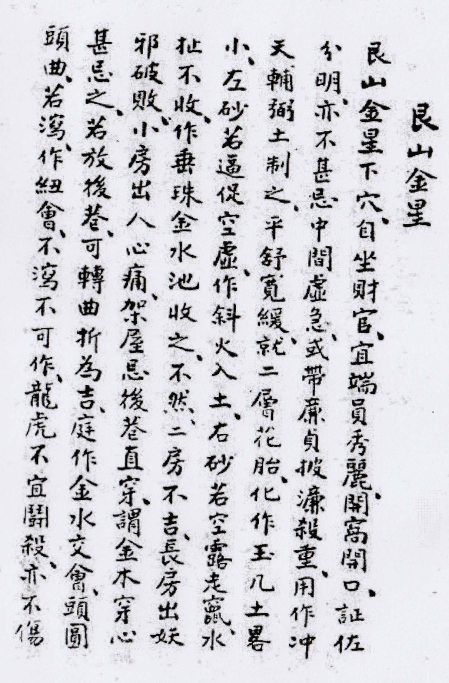 艮山金星
艮山金星下穴、自坐財官、宜端員秀麗、開窩開口、証佐
分明、亦不甚忌中間虛急、或帶廉貞披濂殺重、用作冲
天輔弼土制之、平舒寬緩、就二層花胎、化作玉几土畧
小、左砂若逼促空虛、作斜火入土、右砂若空露走竄、水
扯不收、作垂珠金水池收之、不然、二房不吉、長房出妖
邪破敗、小房出人心痛、架屋忌後巷直穿、謂金木穿心
甚忌之、若放後巷、可轉曲折為吉、庭作金水交會、頭圓
頭曲、若瀉、作紐會、不瀉不可作、龍虎不宜鬪殺、亦不傷